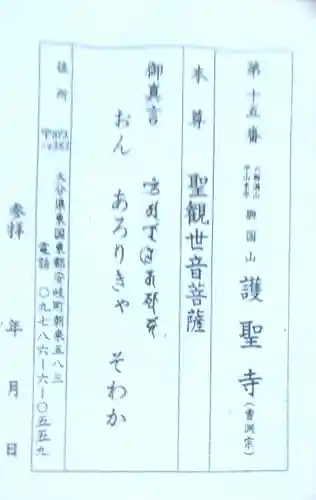 第十五番
六郷満山
中山本寺
興国山 護聖寺(曹洞宗)
本尊 聖観世音菩薩
御真言
おん あろりきゃ そわか
住所
大分県東国東郡安岐町朝来五八三
電話 〇九七八六―六―〇五五九
参拝 年 月 日